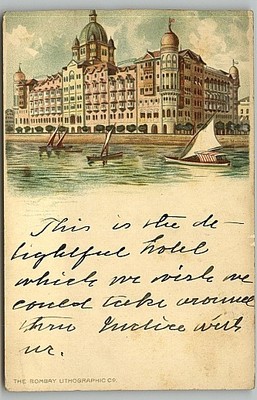 This is the de-
lightful hotel
which we wish we
could take around
thru Indiee with
us.
THE BOMBAY LITHOGRAPHIC CO.